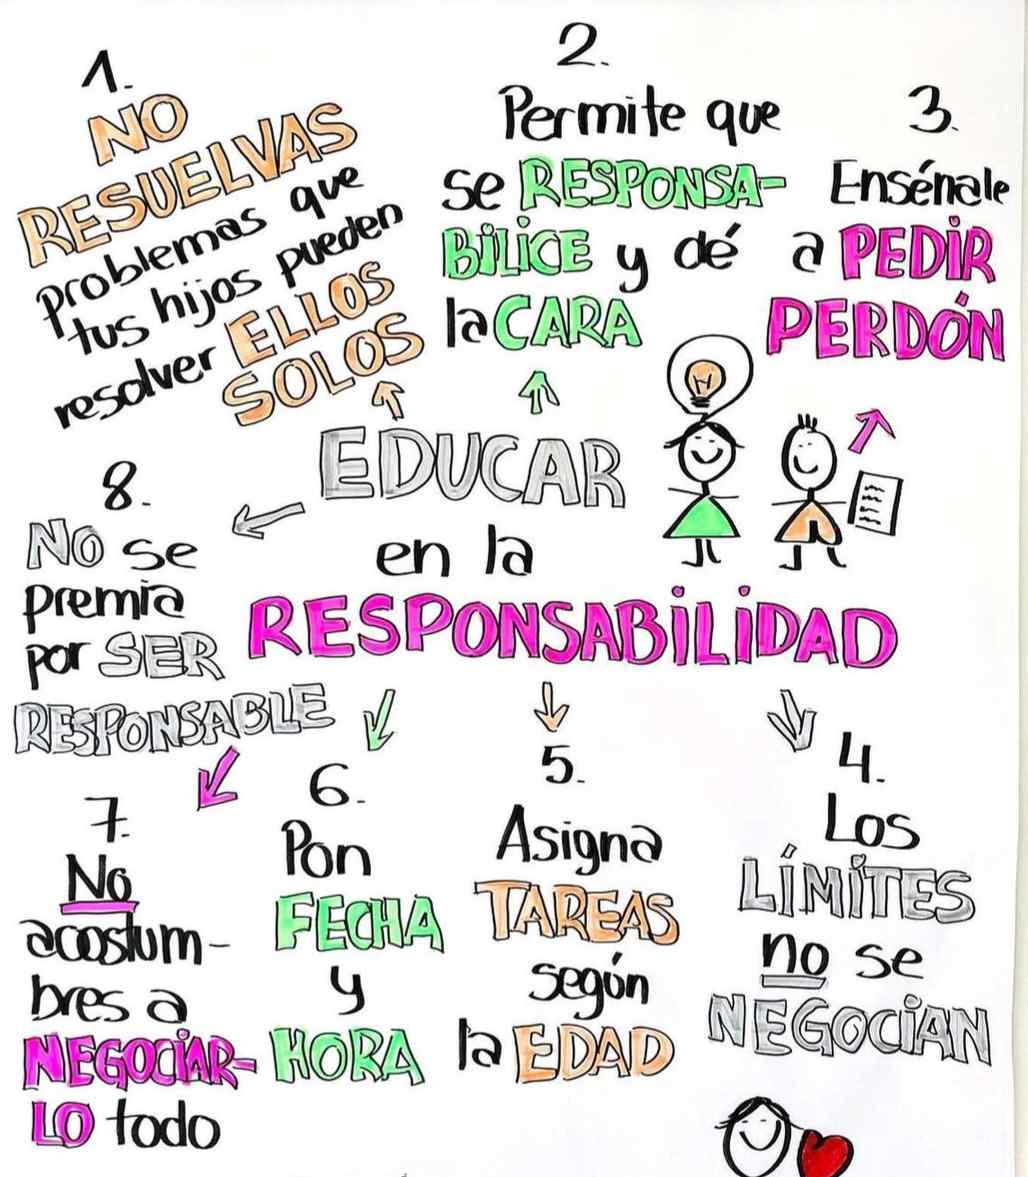 1.
NO
RESUELVAS
problemas que
tus hijos pueden
resolver ELLOS
SOLOS
2.
Permite que
se RESPONSA-
BiLiCE y dé
la CARA
3.
Ensénale
a PEDiR
PERDÓN
EDUCAR
en la
RESPONSABiLiDAD
4.
Los
LÍMiTES
no se
NEGOCiAN
5.
Asigna
TAREAS
según
la EDAD
6.
Pon
FECHA
y
HORA
7.
No
acostum-
bres a
NEGOCiAR-
LO todo
8.
NO se
premia
por SER
RESPONSABLE